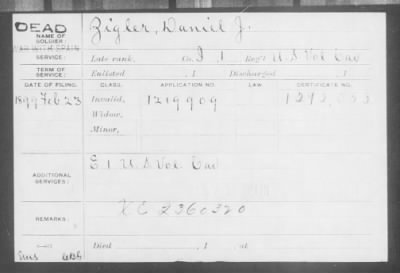 DEAD
NAME OF SOLDIER: Zigler, Daniel J.
WAR WITH SPAIN
SERVICE: Late rank, Co. I, 1 Reg't U.S Vol Cav
TERM OF SERVICE: Enlisted , 1 Discharged , 1
DATE OF FILING. CLASS. APPLICATION NO. LAW. CERTIFICATE NO.
1899 Feb 23 Invalid, 1219909
Widow,
Minor,
ADDITIONAL SERVICES: E 1 U.S Vol. Cav
REMARKS: XC 2360320
Died , 1 , at